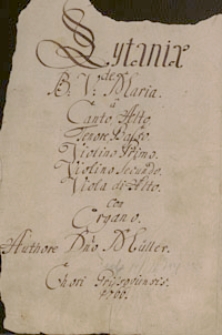 Lytaniæ
de
B. V. Maria.
à
Canto, Alto,
Tenore, Basso.
Violino Primo.
Violino Secundo.
Viola di Alto.
Con
Organo.
Authore Dño Müller.
Chori